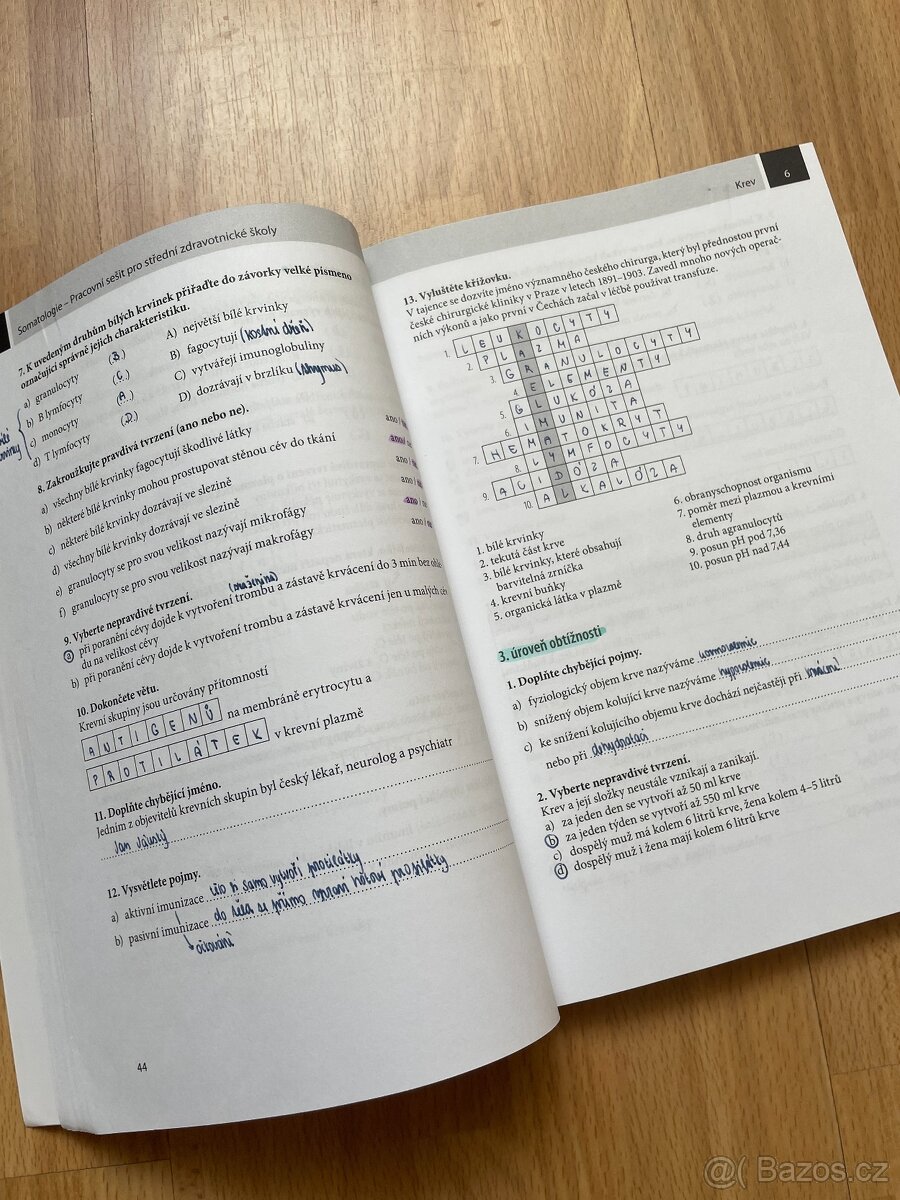 Somatologie – Pracovní sešit pro střední zdravotnické školy
7. K uvedeným druhům bílých krvinek přiřaďte do závorky velké písmeno
označující správně jejich charakteristiku.
a) granulocyty (B.) A) největší bílé krvinky
b) B lymfocyty (C.) B) fagocytují (kostní dřeň)
c) monocyty (A.) C) vytvářejí imunoglobuliny
d) T lymfocyty (D.) D) dozrávají v brzlíku (thymus)
8. Zakroužkujte pravdivá tvrzení (ano nebo ne).
a) všechny bílé krvinky fagocytují škodlivé látky ano /
b) některé bílé krvinky mohou prostupovat stěnou cév do tkání ano /
c) některé bílé krvinky dozrávají ve slezině ano /
d) všechny bílé krvinky dozrávají ve slezině ano /
e) granulocyty se pro svou velikost nazývají mikrofágy ano /
f) granulocyty se pro svou velikost nazývají makrofágy ano /
9. Vyberte nepravdivé tvrzení. (sraženina)
a) při poranění cévy dojde k vytvoření trombu a zástavě krvácení do 3 min bez
du na velikost cévy
b) při poranění cévy dojde k vytvoření trombu a zástavě krvácení jen u malých cév
10. Dokončete větu.
Krevní skupiny jsou určovány přítomností
ANTIGENŮ na membráně erytrocytu a
PROTILÁTEK v krevní plazmě
11. Doplňte chybějící jméno.
Jedním z objevitelů krevních skupin byl český lékař, neurolog a psychiatr
Jan Jánský
12. Vysvětlete pojmy.
a) aktivní imunizace tělo si samo vytvoří protilátky
b) pasivní imunizace do těla se přímo vpraví hotové protilátky
očkování
44
Krev 6
13. Vyluštěte křížovku.
V tajence se dozvíte jméno významného českého chirurga, který byl přednostou první
české chirurgické kliniky v Praze v letech 1891–1903. Zavedl mnoho nových operač-
ních výkonů a jako první v Čechách začal v léčbě používat transfuze.
1. LEUKOCYTY
2. PLAZMA
3. GRANULOCYTY
4. ELEMENTY
5. GLUKÓZA
6. IMUNITA
7. HEMATOKRYT
8. LYMFOCYTY
9. ACIDÓZA
10. ALKALÓZA
1. bílé krvinky
2. tekutá část krve
3. bílé krvinky, které obsahují
barvitelná zrníčka
4. krevní buňky
5. organická látka v plazmě
6. obranyschopnost organismu
7. poměr mezi plazmou a krevními
elementy
8. druh agranulocytů
9. posun pH pod 7,36
10. posun pH nad 7,44
3. úroveň obtížnosti
1. Doplňte chybějící pojmy.
a) fyziologický objem krve nazýváme normovolemie
b) snížený objem kolující krve nazýváme hypovolemie
c) ke snížení kolujícího objemu krve dochází nejčastěji při krvácení
nebo při dehydrataci
2. Vyberte nepravdivé tvrzení.
Krev a její složky neustále vznikají a zanikají.
a) za jeden den se vytvoří až 50 ml krve
b) za jeden týden se vytvoří až 550 ml krve
c) dospělý muž má kolem 6 litrů krve, žena kolem 4–5 litrů
d) dospělý muž i žena mají kolem 6 litrů krve
@( Bazos.cz